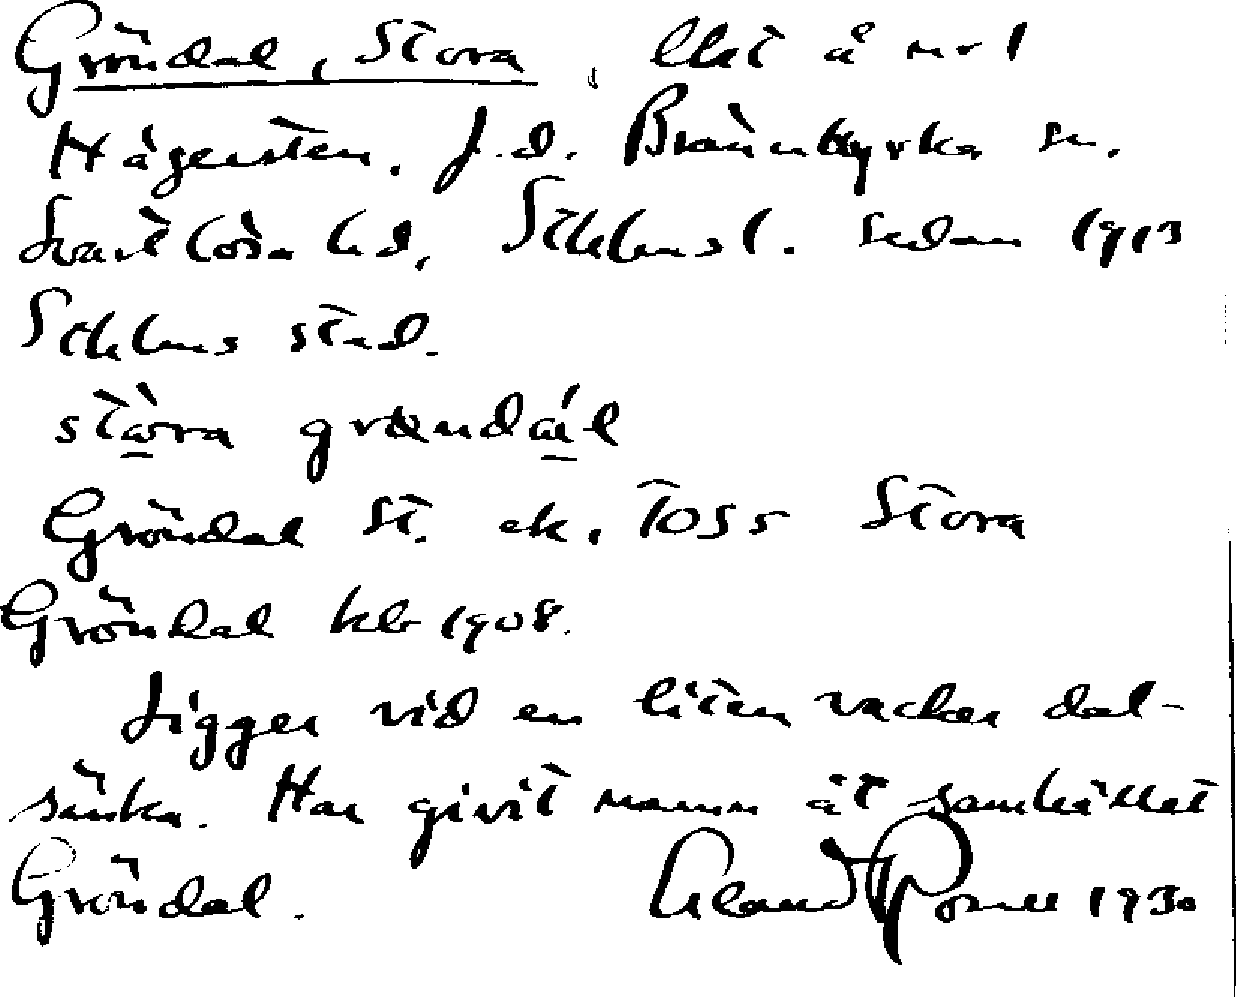 Gröndal, Stora, lht å nr 1
Hägersten. f.d. Brännkyrka sn.
Svartlösa hd, Sthlms l. sedan 1913
Sthlms stad.
stòra grœndál
Gröndal St. ek. Toss Stora
Gröndal kb 1908.
Ligger vid en liten vacker dal-
sänka. Har givit namn åt samhället
Gröndal. 1930